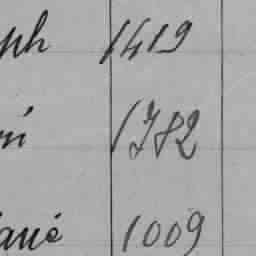 ph 1419
ni 1782
ané 1009